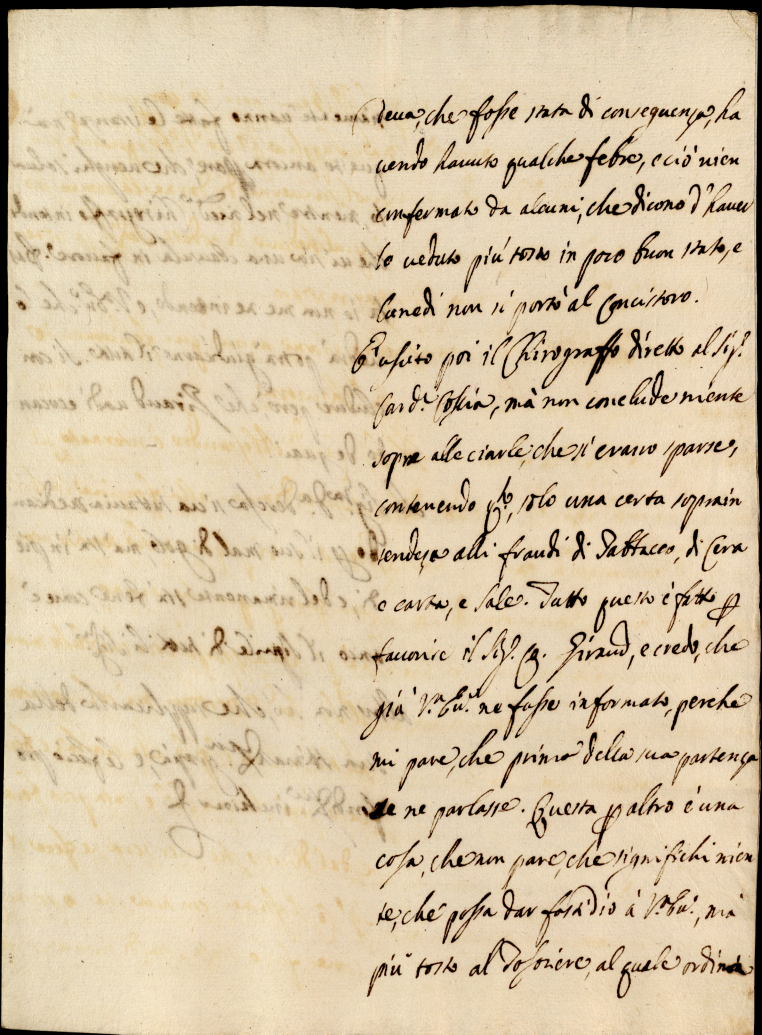 deua, che fosse stata di consequenza, ha
uendo hauuto qualche febre, e ciò uien
confermato da alcuni, che dicono d'hauer
lo ueduto più tosto in poco buon stato, e
lunedì non si portò al Concistoro.
È uscito poi il Chirografo diretto al Sig.r
Card.l Coscia, mà non conclude niente
sopra alle ciarle, che si erano sparse,
contenendo q.to, solo una certa soprain
tendeza alli fraudi di Tabbacco, di Cera
e carta, e sale. Tutto questo è fatto p
fauorire il Sig.r Giraud, e credo, che
già V.ra Em.a ne fosse informato, perche
mi pare, che prima della sua partenza
se ne parlasse. Questa p altro è una
cosa, che non pare, che significhi nien
te, che possa dar fastidio à V.ra Em.a, mà
più tosto al Tesoriere, al quale ordina